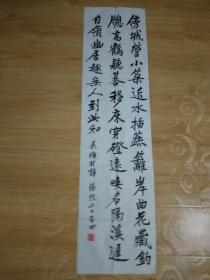 傍城營小築近水插疏籬岸曲花藏釣
牕高鶴聽碁移床穿磴遠喚茗隔溪遲
自領幽居趣無人到此知 吴梅村詩 張